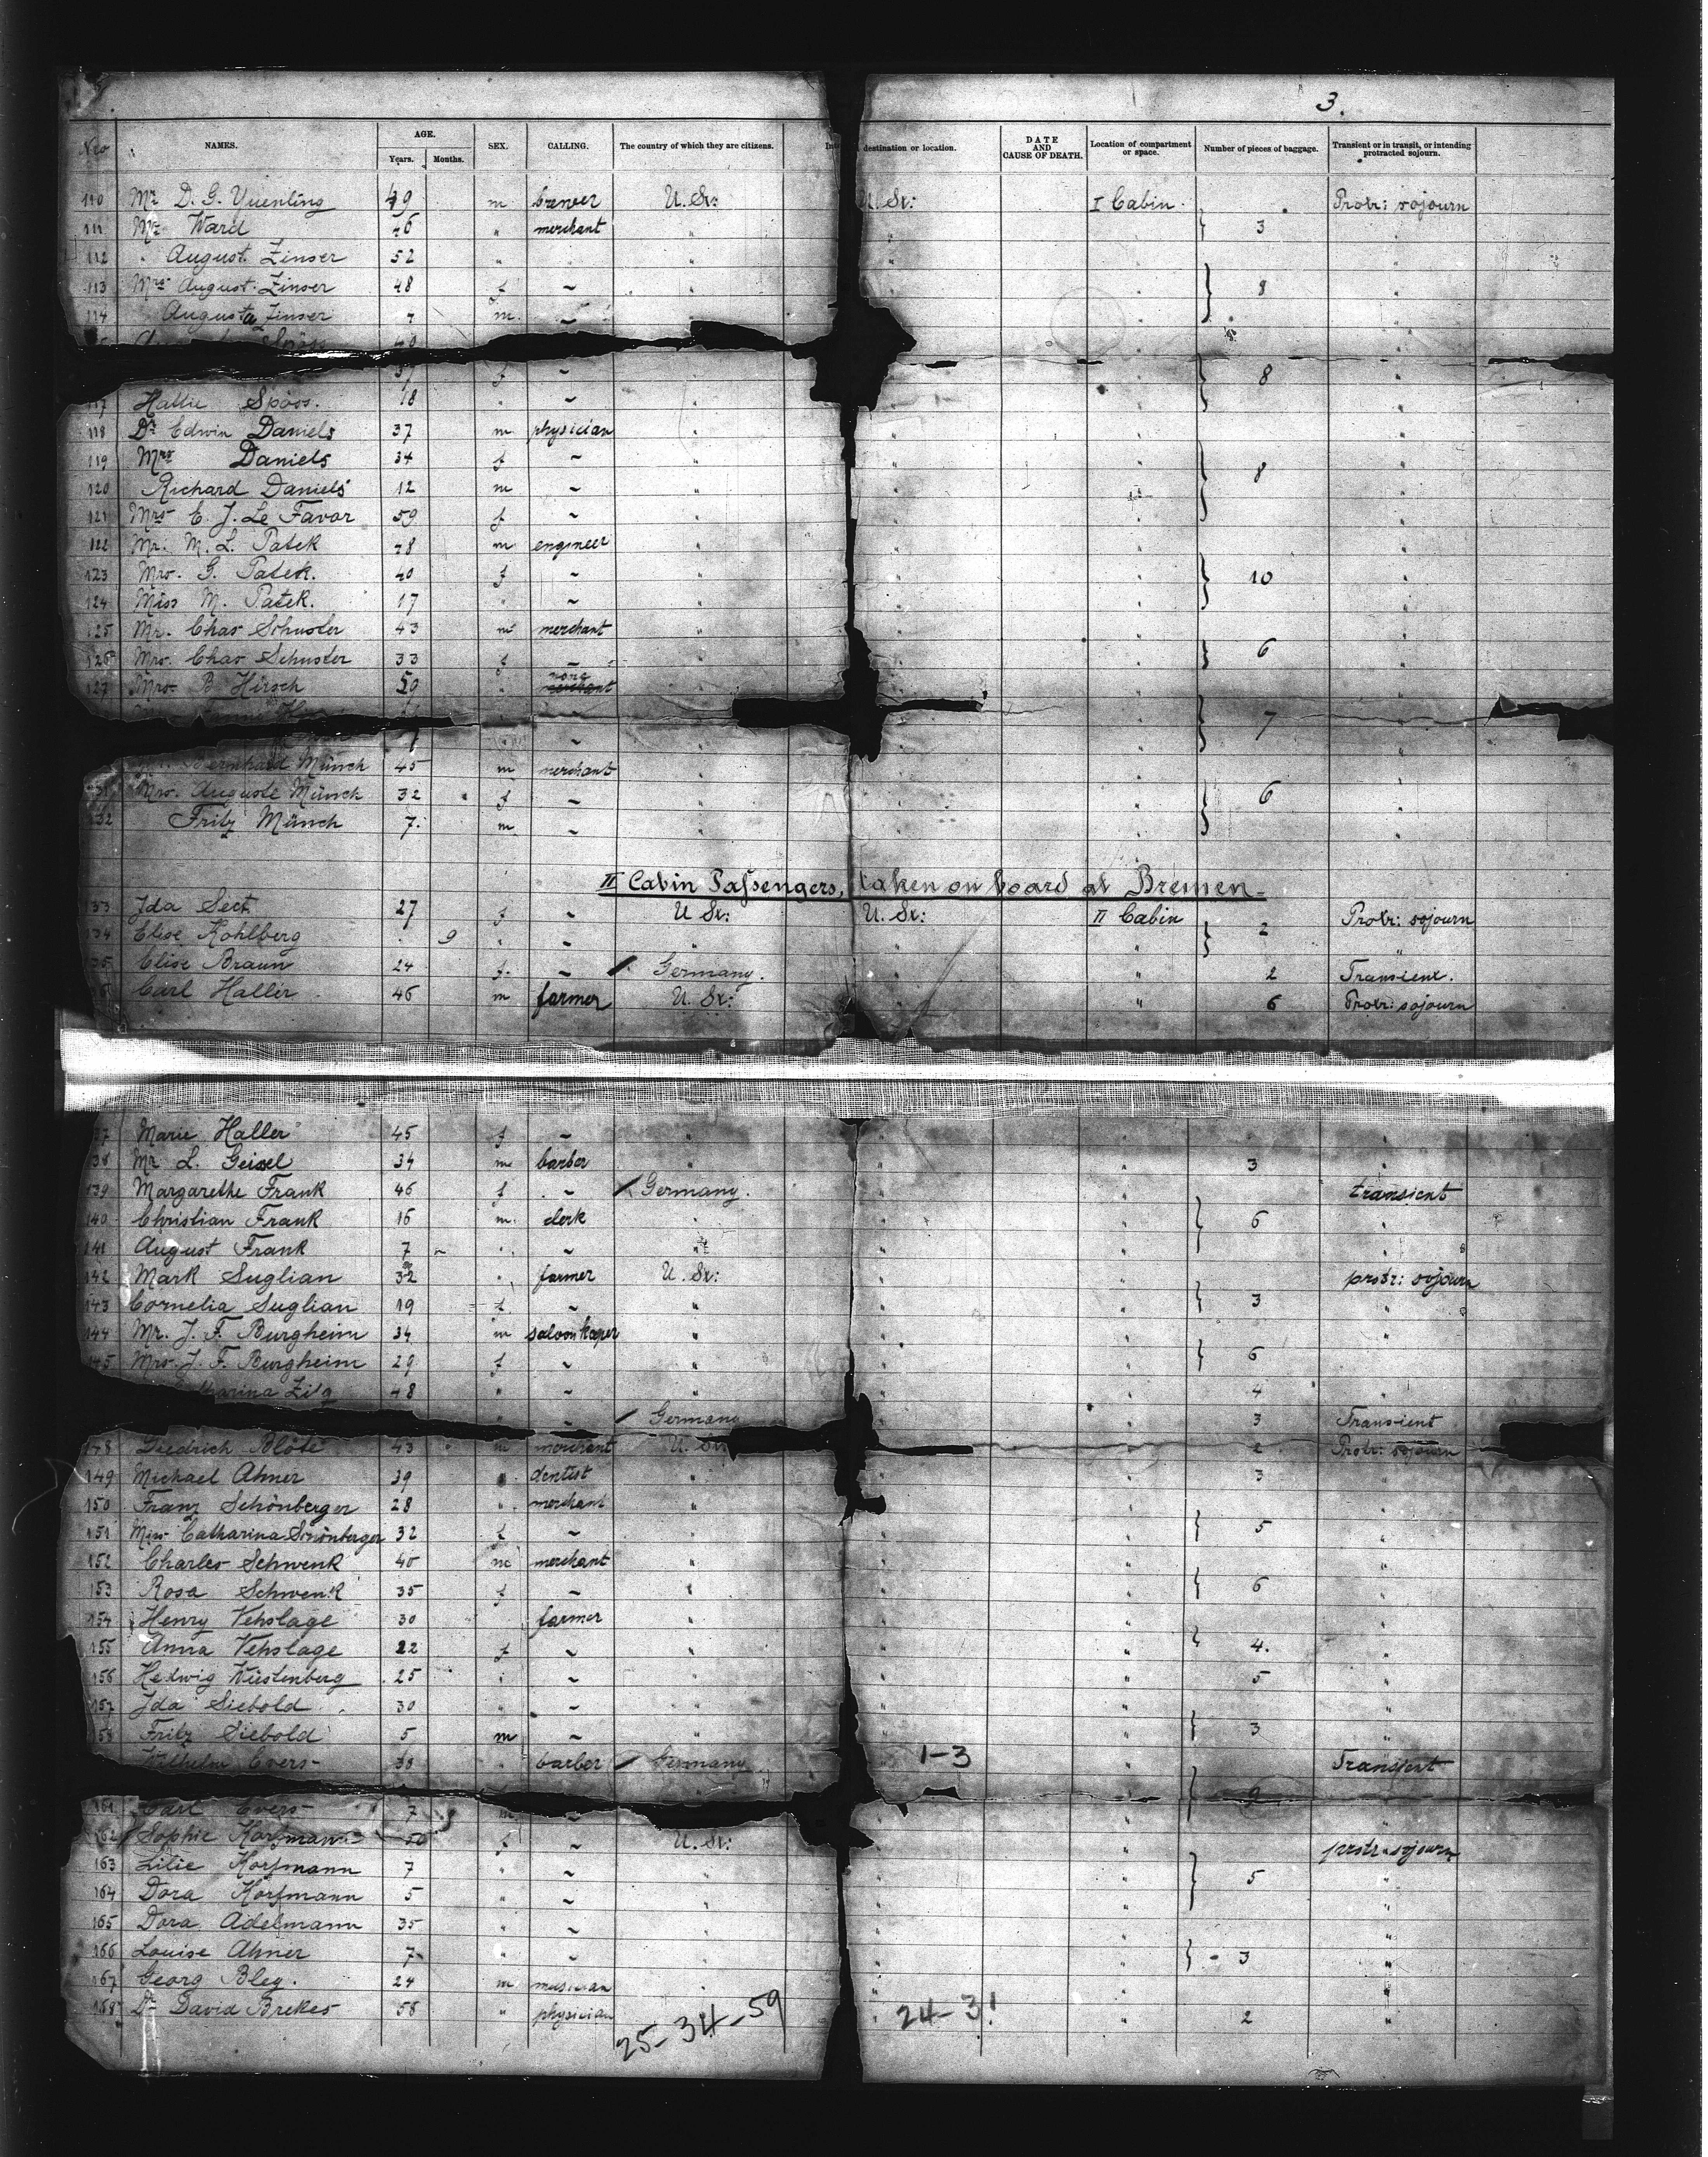 3.
Nro NAMES. AGE. Years. Months. SEX. CALLING. The country of which they are citizens. destination or location. DATE AND CAUSE OF DEATH. Location of compartment or space. Number of pieces of baggage. Transient or in transit, or intending protracted sojourn.
110 Mr D. G. Yuenling 49 m brewer U. St: U. St: I Cabin Protr: sojourn
111 Mr Ward 46 " merchant " " " 3 "
112 " August Zinser 52 " " " " " "
113 Mrs August Zinser 48 f ~ " " " 8 "
114 Augusta Zinser 7 m. ~ " " " "
37 f ~ " " " 8 "
117 Hallie Spöss. 18 " ~ " " " "
118 Dr Edwin Daniels 37 m physician " " " "
119 Mrs Daniels 34 f ~ " " " 8 "
120 Richard Daniels 12 m ~ " " " "
121 Mrs E. J. Le Favor 59 f ~ " " " "
122 Mr. M. L. Patek 48 m engineer " " " "
123 Mrs. G. Patek. 40 f ~ " " " 10 "
124 Miss M. Patek. 17 " ~ " " " "
125 Mr. Chas Schuster 43 m merchant " " " "
126 Mrs. Chas Schuster 33 f ~ " " " 6 "
127 Mrs. B Hirsch 59 " none " " " "
7
~ " " " "
Bernhard Münch 45 m merchant " " " "
131 Mrs. Auguste Münch 32 f ~ " " " 6 "
132 Fritz Münch 7. m ~ " " " "
II Cabin Passengers, taken on board at Bremen.
133 Ida Sect 27 f ~ U St: U. St: II Cabin Protr: sojourn
134 Elise Kohlberg 9 " ~ " " 2 "
135 Elise Braun 24 f. ~ Germany. " " 2 Transient.
136 Carl Haller 46 m farmer U. St: " " 6 Protr: sojourn
137 Marie Haller 45 f ~ " " " "
138 Mr L. Geissel 34 m barber " " " 3 "
139 Margarethe Frank 46 f ~ Germany. " " transient
140 Christian Frank 16 m. clerk " " " 6 "
141 August Frank 7 " ~ " " " "
142 Mark Suglian 32 " farmer U. St: " " protr: sojourn
143 Cornelia Suglian 19 f ~ " " " 3 "
144 Mr. J. F. Burgheim 34 m saloonkeeper " " " "
145 Mrs. J. F. Burgheim 29 f ~ " " " 6 "
Zilg 48 " ~ " " " 4 "
" ~ Germany " " 3 Transient
148 Diedrich Blöte 43 m merchant U. St: " 2 Protr: sojourn
149 Michael Ahner 39 " dentist " " " 3 "
150 Franz Schönberger 28 " merchant " " " "
151 Mrs Catharina Schönberger 32 f ~ " " " 5 "
152 Charles Schwenk 40 m merchant " " " "
153 Rosa Schwenk 35 f ~ " " " 6 "
154 Henry Vehslage 30 farmer " " " "
155 Anna Vehslage 22 f ~ " " " 4. "
156 Hedwig Wüstenberg 25 " ~ " " " 5 "
157 Ida Siebold 30 " ~ " " " "
158 Fritz Siebold 5 m ~ " " " 3 "
Wilhelm Evers 30 " barber Germany 1-3 Transient
9
161 Carl Evers 7 m ~ " " "
162 Sophie Korfmann 50 f ~ U. St: " " protr. sojourn
163 Lilie Korfmann 7 " ~ " " " 5 "
164 Dora Korfmann 5 " ~ " " " "
165 Dora Adelmann 35 " ~ " " " "
166 Louise Ahner 7 " ~ " " " 3 "
167 Georg Bley. 24 m musician " " " "
168 Dr David Brekes 56 " physician " " 2 "
25-34-59 24-31